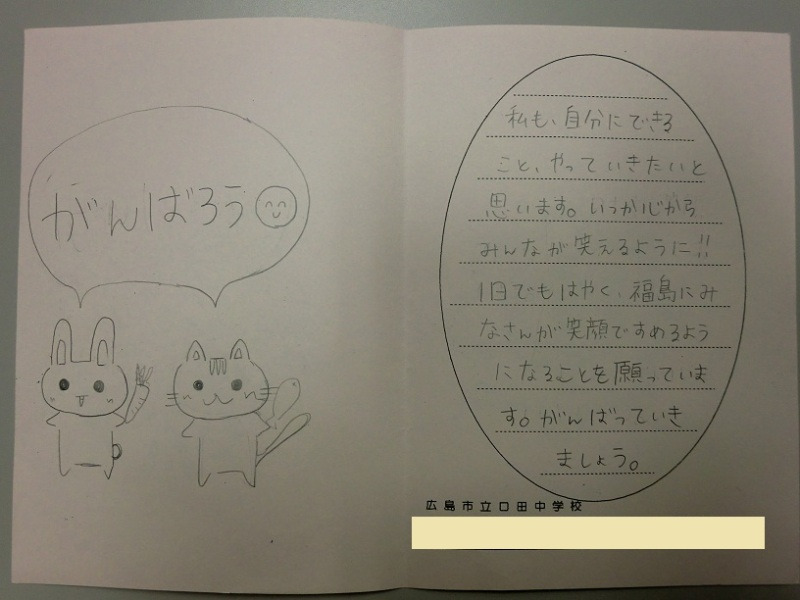 がんばろう
私も、自分にできる
こと、やっていきたいと
思います。いつか心から
みんなが笑えるように!!
1日でもはやく、福島にみ
なさんが笑顔ですめるよう
になることを願っていま
す。がんばっていき
ましょう。
広島市立口田中学校